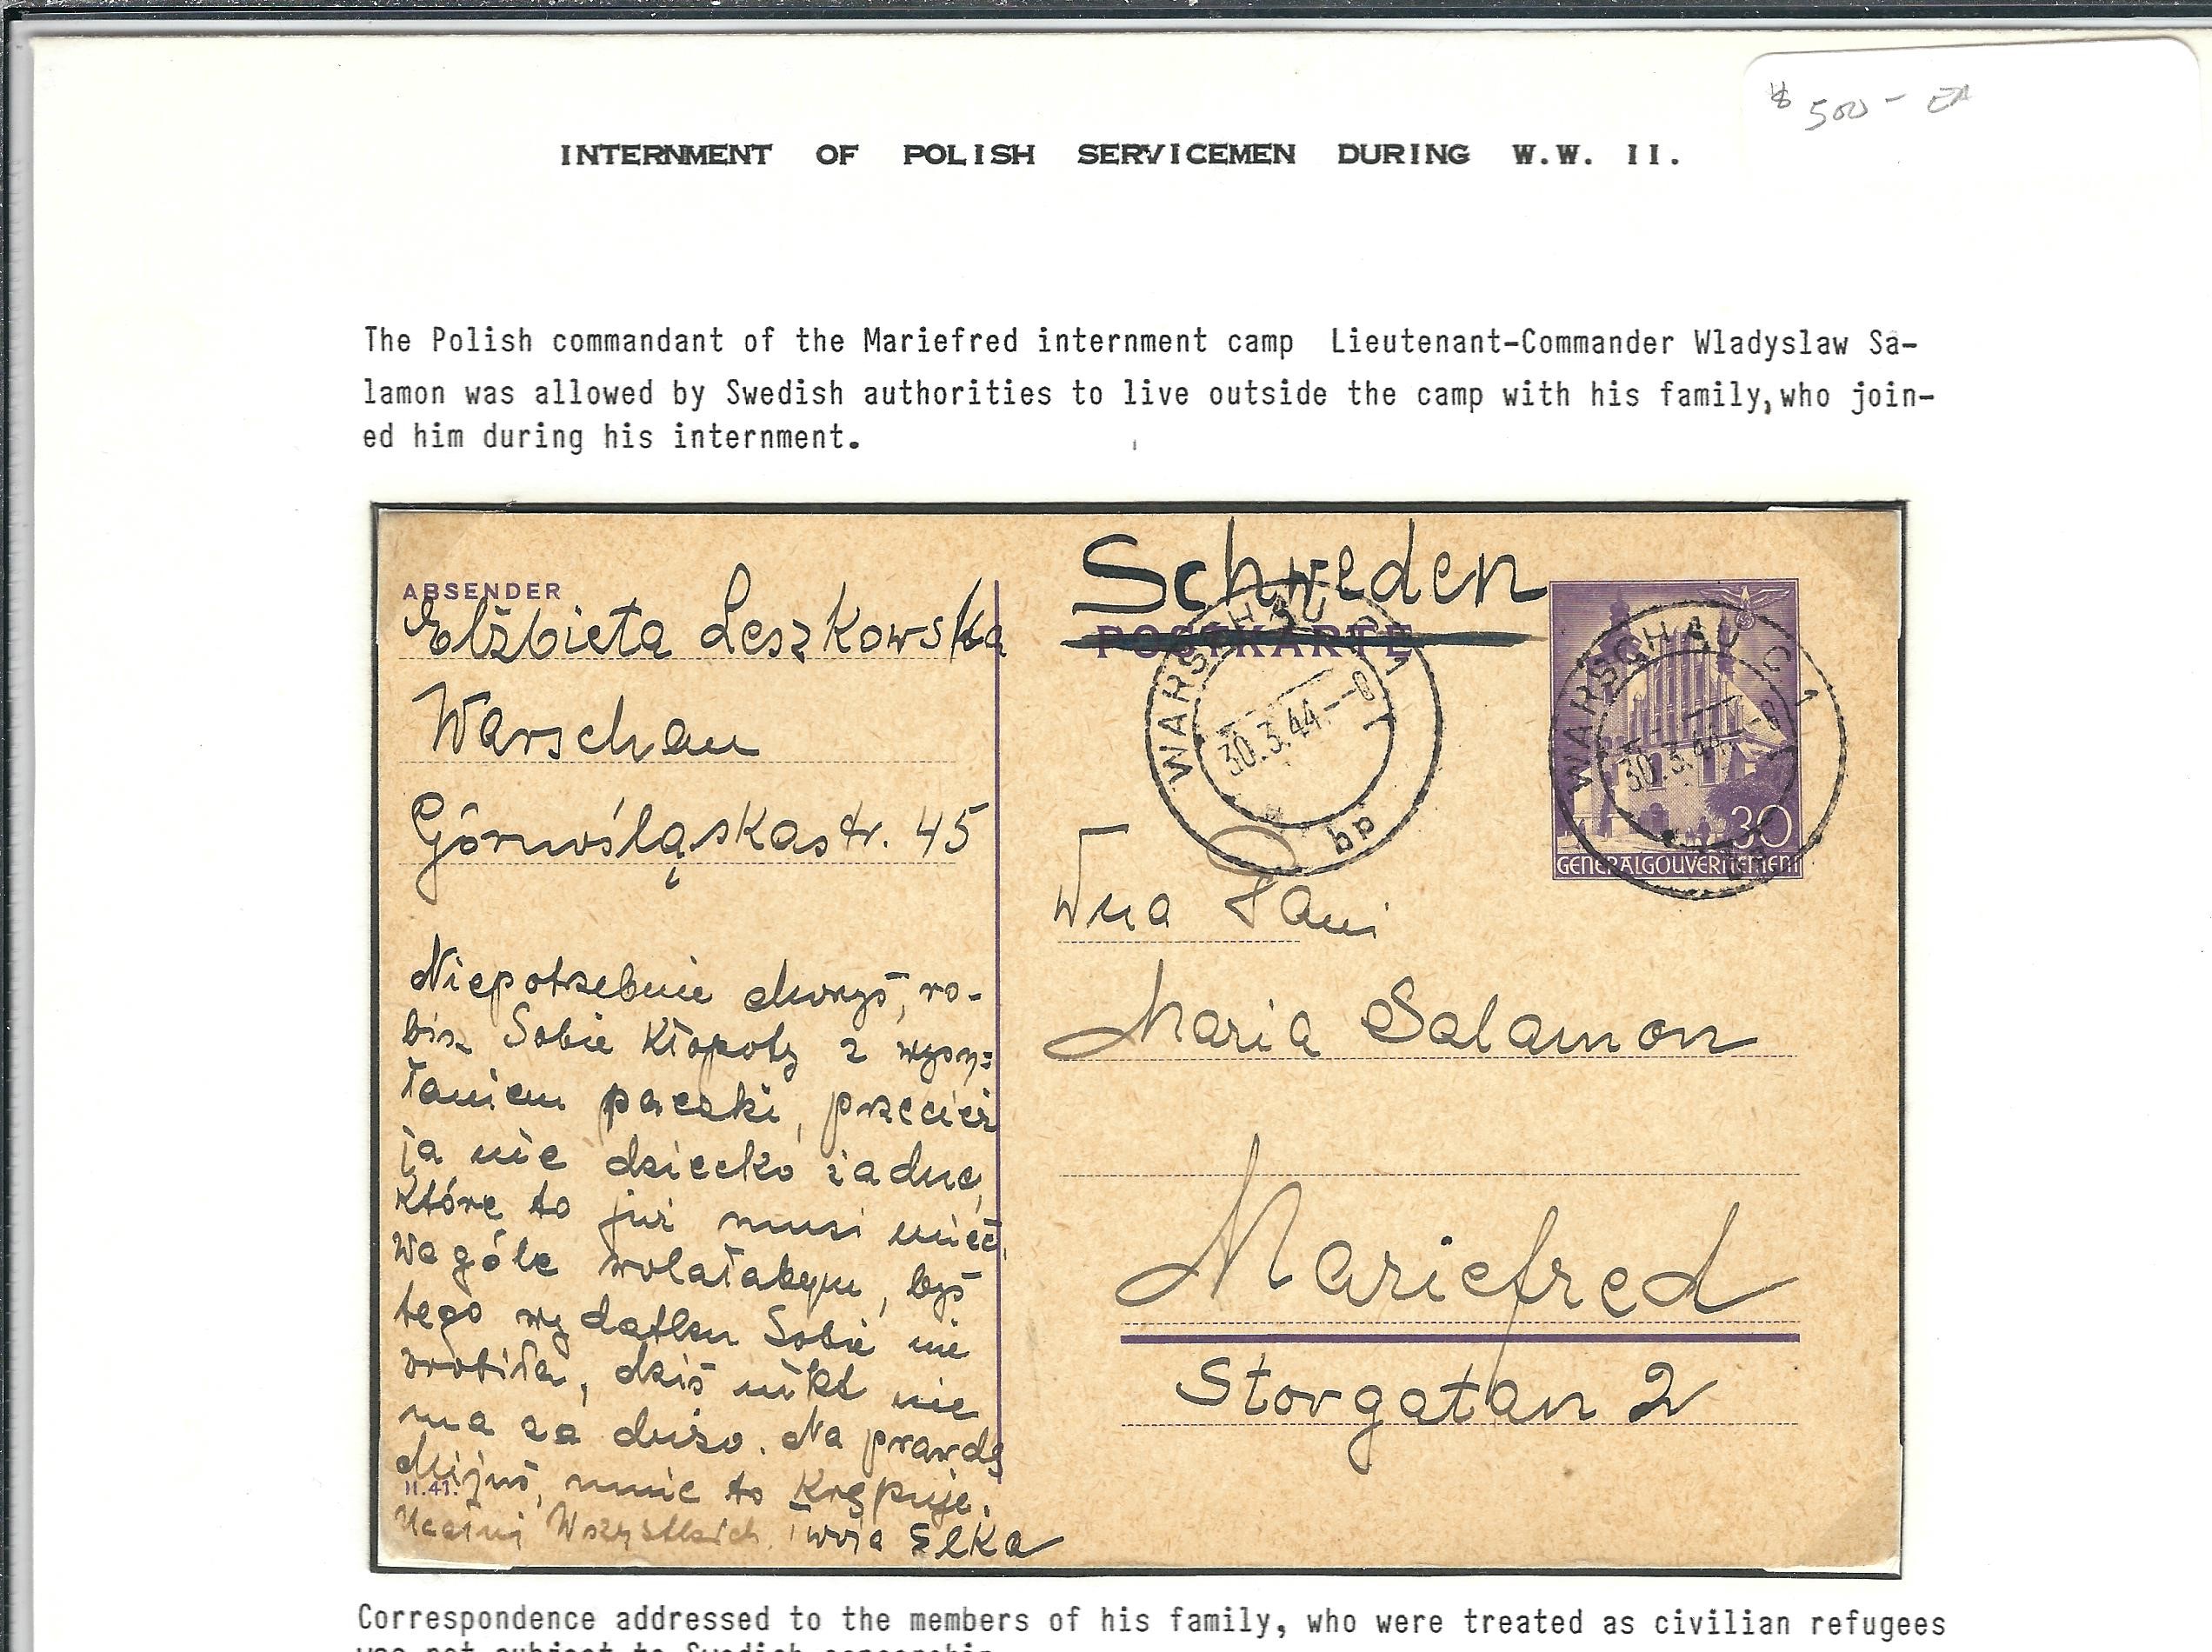 $ 500 -
INTERNMENT OF POLISH SERVICEMEN DURING W.W. II.
The Polish commandant of the Mariefred internment camp Lieutenant-Commander Wladyslaw Sa-
lamon was allowed by Swedish authorities to live outside the camp with his family,who join-
ed him during his internment.
ABSENDER
Elżbieta Leszkowska
Warschau
Górnośląskastr. 45
Niepotrzebnie chcesz, ro-
bisz Sobie Kłopoty z wysy=
łaniem paczki, przecież
ja nie dziecko żadne,
które to już musi mieć.
Wogóle wolałabym, byś
tego wydatku Sobie nie
zrobiła, dziś nikt nie
ma za dużo. Na prawdę
mnie to Krępuje.
II.41.
Wszystkich. Twoja Elka
Schweden
POSTKARTE
WARSCHAU C 1
30.3.44.-8
bp
WARSCHAU C 1
30.3.44.-8
30
GENERALGOUVERNEMENT
Wna Pani
Maria Salamon
Mariefred
Storgatan 2
Correspondence addressed to the members of his family, who were treated as civilian refugees
was not subject to Swedish censorship